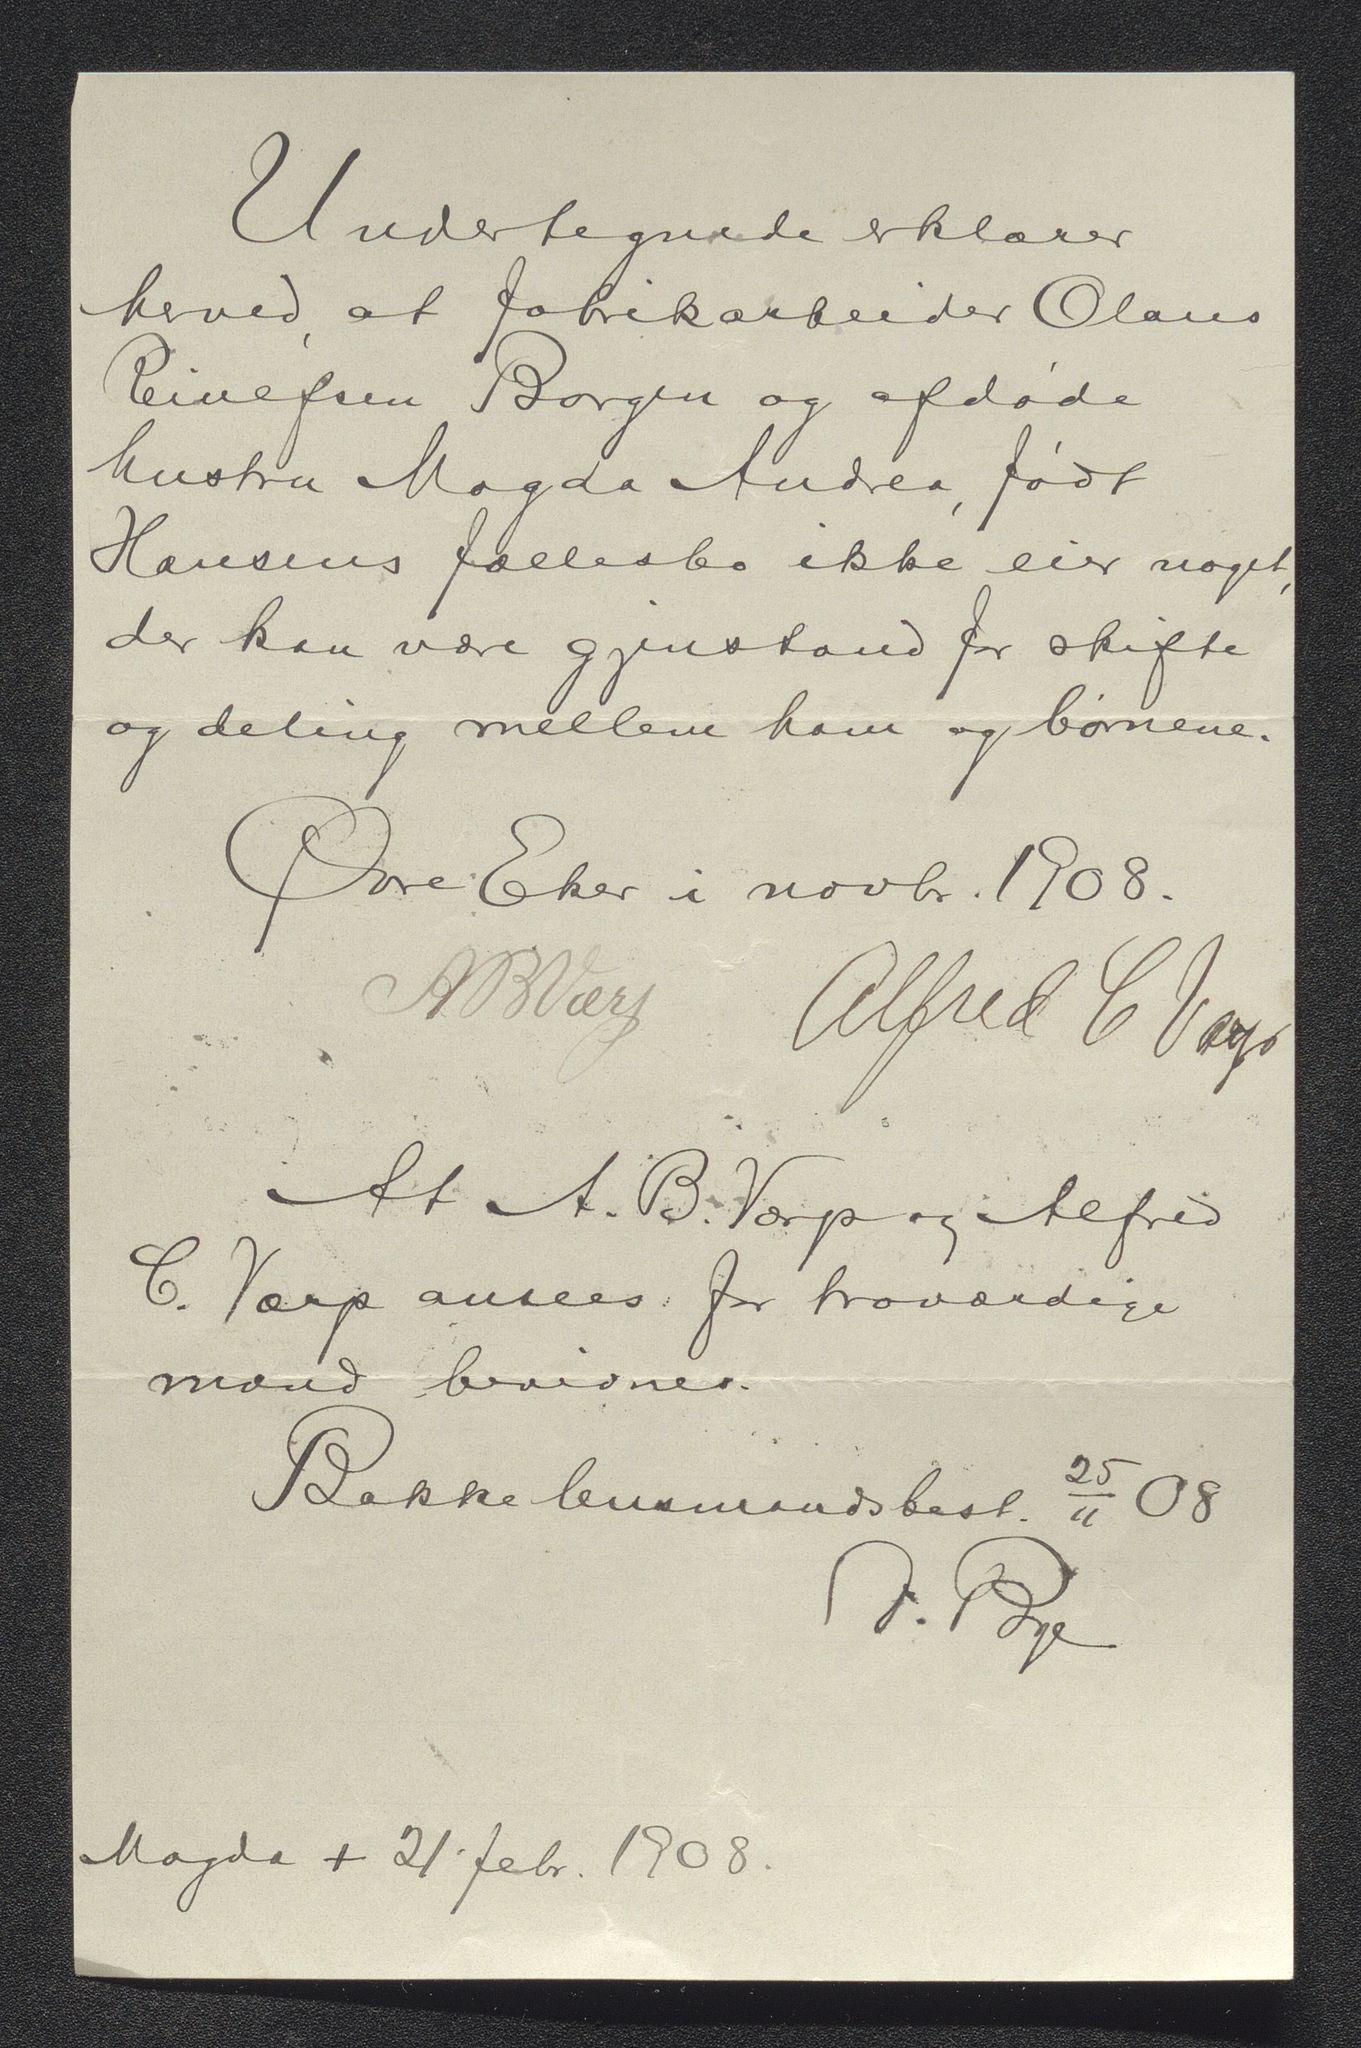 Undertegnede erklærer
herved, at fabrikarbeider Olaus
Einefsen Borgen og afdøde
hustru Magda Andrea, født
Hansens fællesbo ikke eier noget,
der kan være gjenstand for skifte
og deling mellem ham og børnene.
Øvre Eker i novbr. 1908.
A BVærp Alfred C Værp
At A. B. Værp og Alfred
C. Værp ansees for troværdige
mænd bevidnes.
Bakke lensmandsbest. 25/11 08
Bye
Magda + 21 febr. 1908.